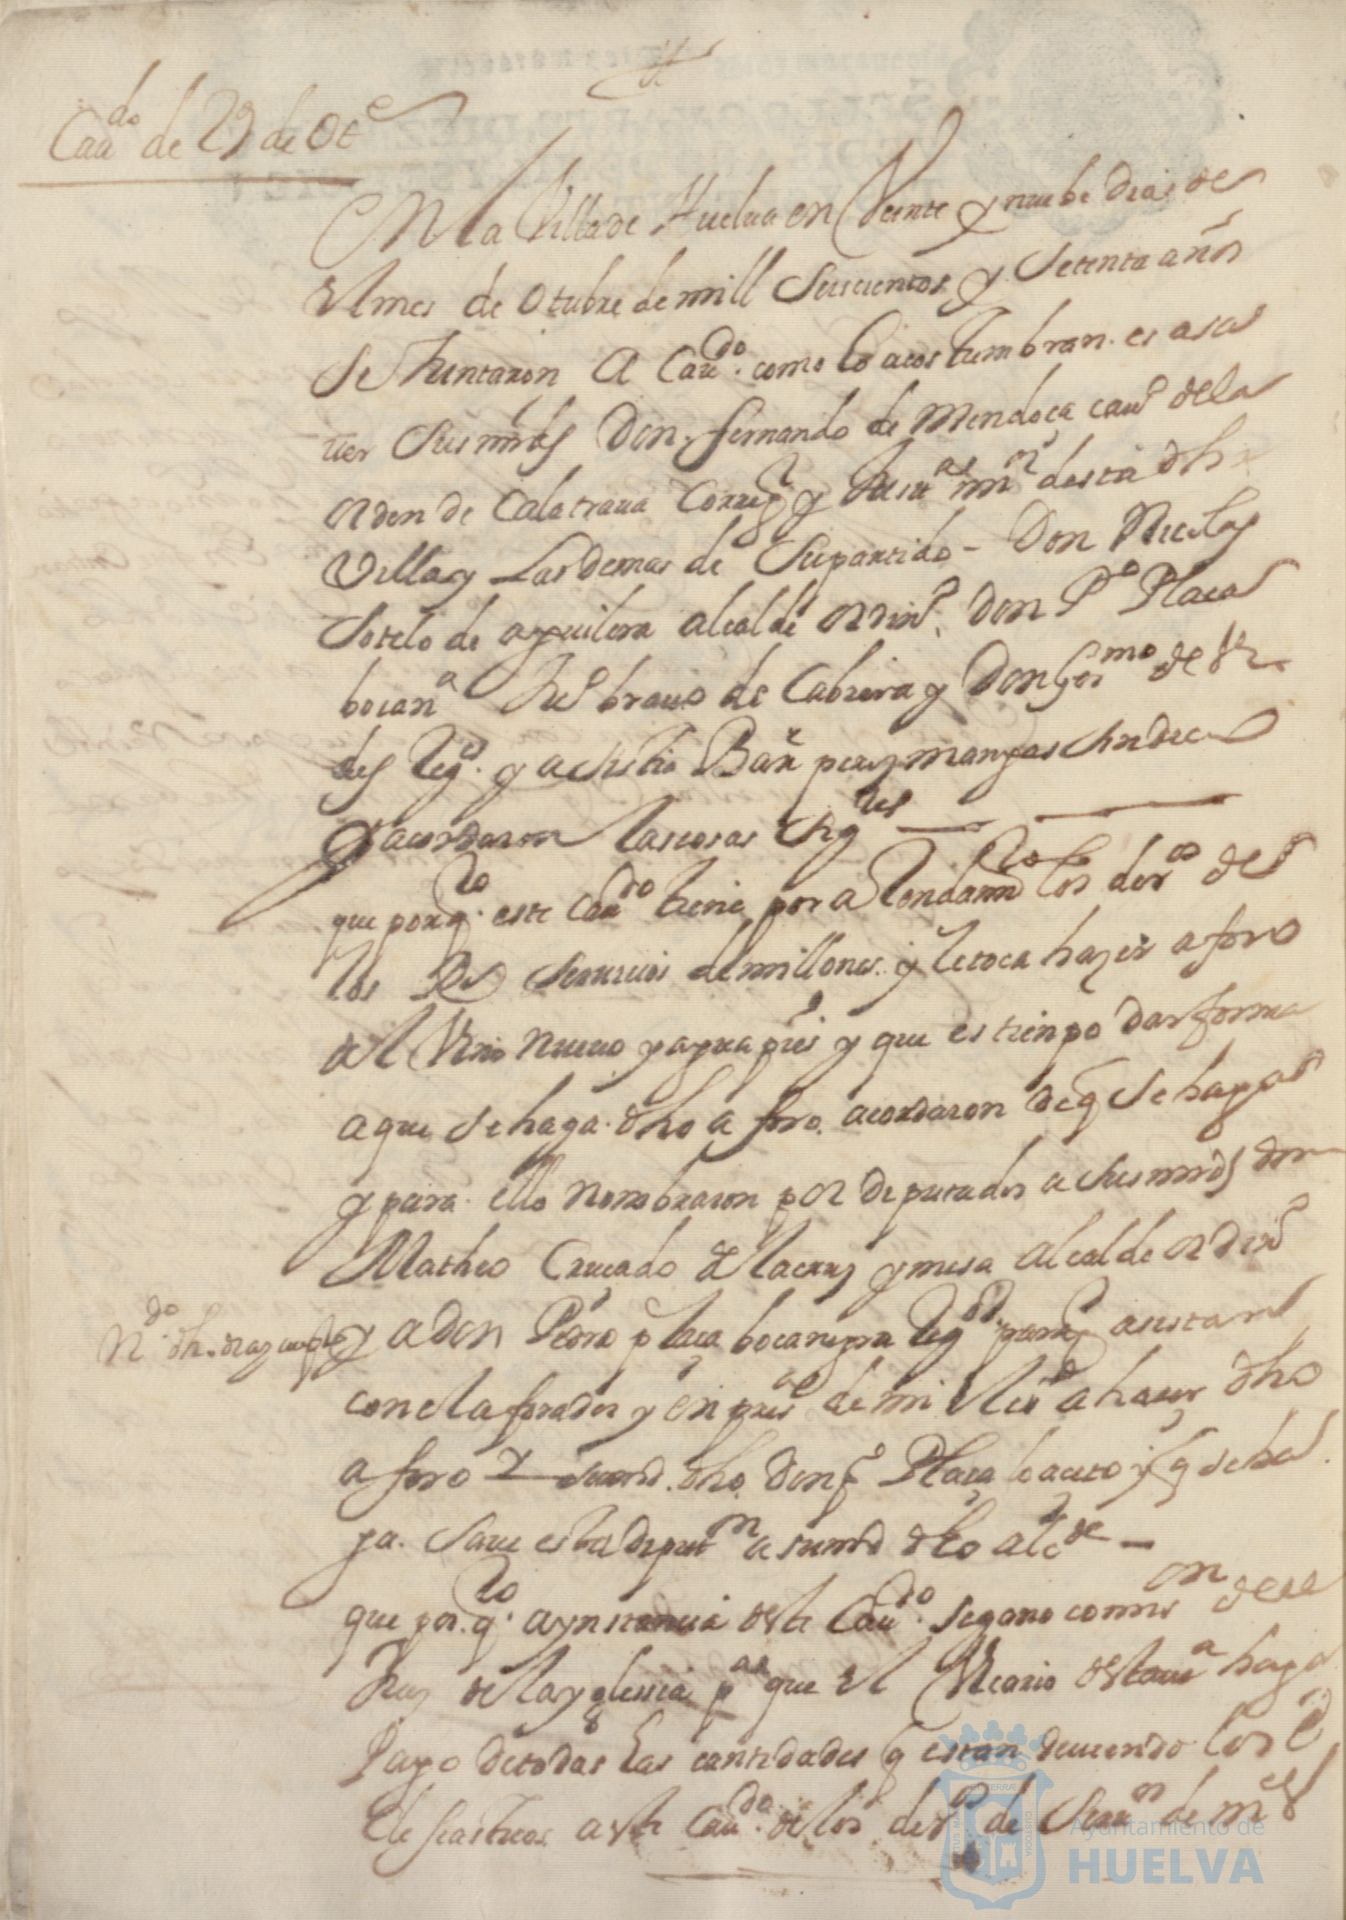 Cau.do de 29 de Ote
En la Villa de Huelua en Veinte y nuebe dias de
el mes de Otubre de mill Seiscientos y Setenta años
Se Juntaron A Cau.do como lo acostumbran es a sa
uer Sus mrds Don fernando de Mendoça cauo de la
orden de Calatraua Correg.r y Jusa mor desta dha
Villa y Las demas de Su partido - Don Nicolas
Sotelo de aguilera alcalde ordino Don Po Plaça
bocana Juo brauo de Cabrera y Don Germo de
des Regs y asistio Bar perez mangas Sindico
y acordaron las cosas Sigtes
que por qto este Cau.do tiene por arrendamto los deros de
los Rs Seruicios de millones y le toca hazer aforo
del Vino nueuo y aguapies y que es tienpo dar forma
a que se haga dho aforo acordaron de q se haga
y para ello nonbraron por diputados a sus mrds don
Matheo Cruçado de la cruz y mesa alcalde ordino
y a don Pedro plaça bocanegra Regdor para q asistan
con el aforador y en presa de mi el esno a hacer dho
aforo y su md dho don po Plaça lo aceto y q se ha
ga sauer esta diputon a su md dho alcde
que por qto a ynstancia deste Cau.do se gano comison del
Juez de la yglessia pa que el Vicario desta va haga
Pago de todas Las cantidades q estan deuiendo los
Eclesiasticos a este Cau.do de los deros de Seruos de mes
Ayuntamiento de
HUELVA